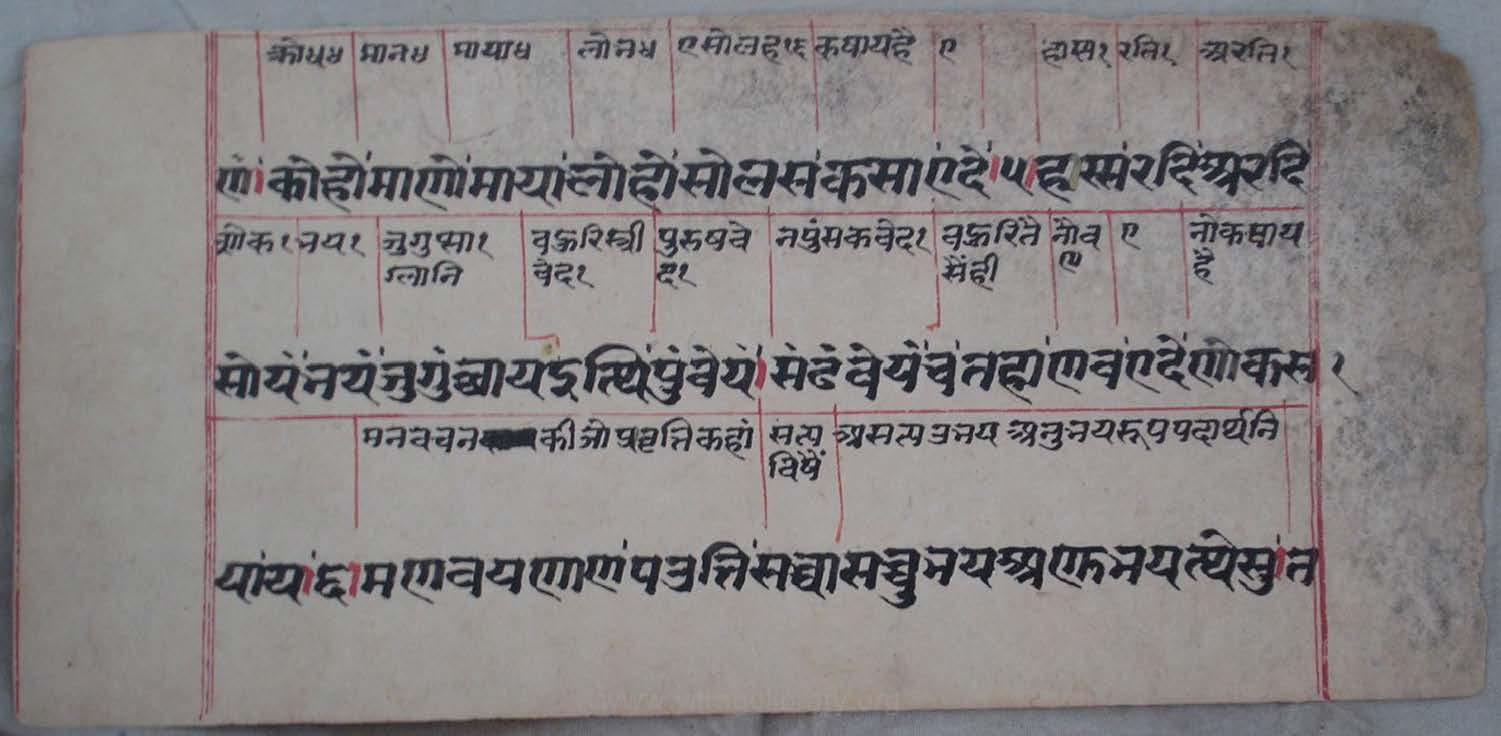 क्रोध४ मानध मायाध लोभध ए सोलह१६ कषाय है ए हास्य१ रति१ अरति१
णं। कोहो माणो माया लोहो सोलस कसा एदे। ५। हास्सं रदि अरदि
शोक१ भय१ जुगुप्सा१ बहुरि स्त्री पुरुष वे नपुंसक वेद१ बहुरि तै नौव ए नोकषाय
ग्लानि वेद१ द१ सैंही ए है
सोयं भयं जुगुंछा य इत्थि पुंवेयं। संढं वेयं च तहा णव एदे णोकस१
मन वचन की जो प्रवृत्ति कहां सत्य असत्य उभय अनुभय रूप पदार्थनि
विषैं
याया। ६। मणवयणाणं पउत्ति सच्चासच्चुभयअणुभयत्थेसु। त